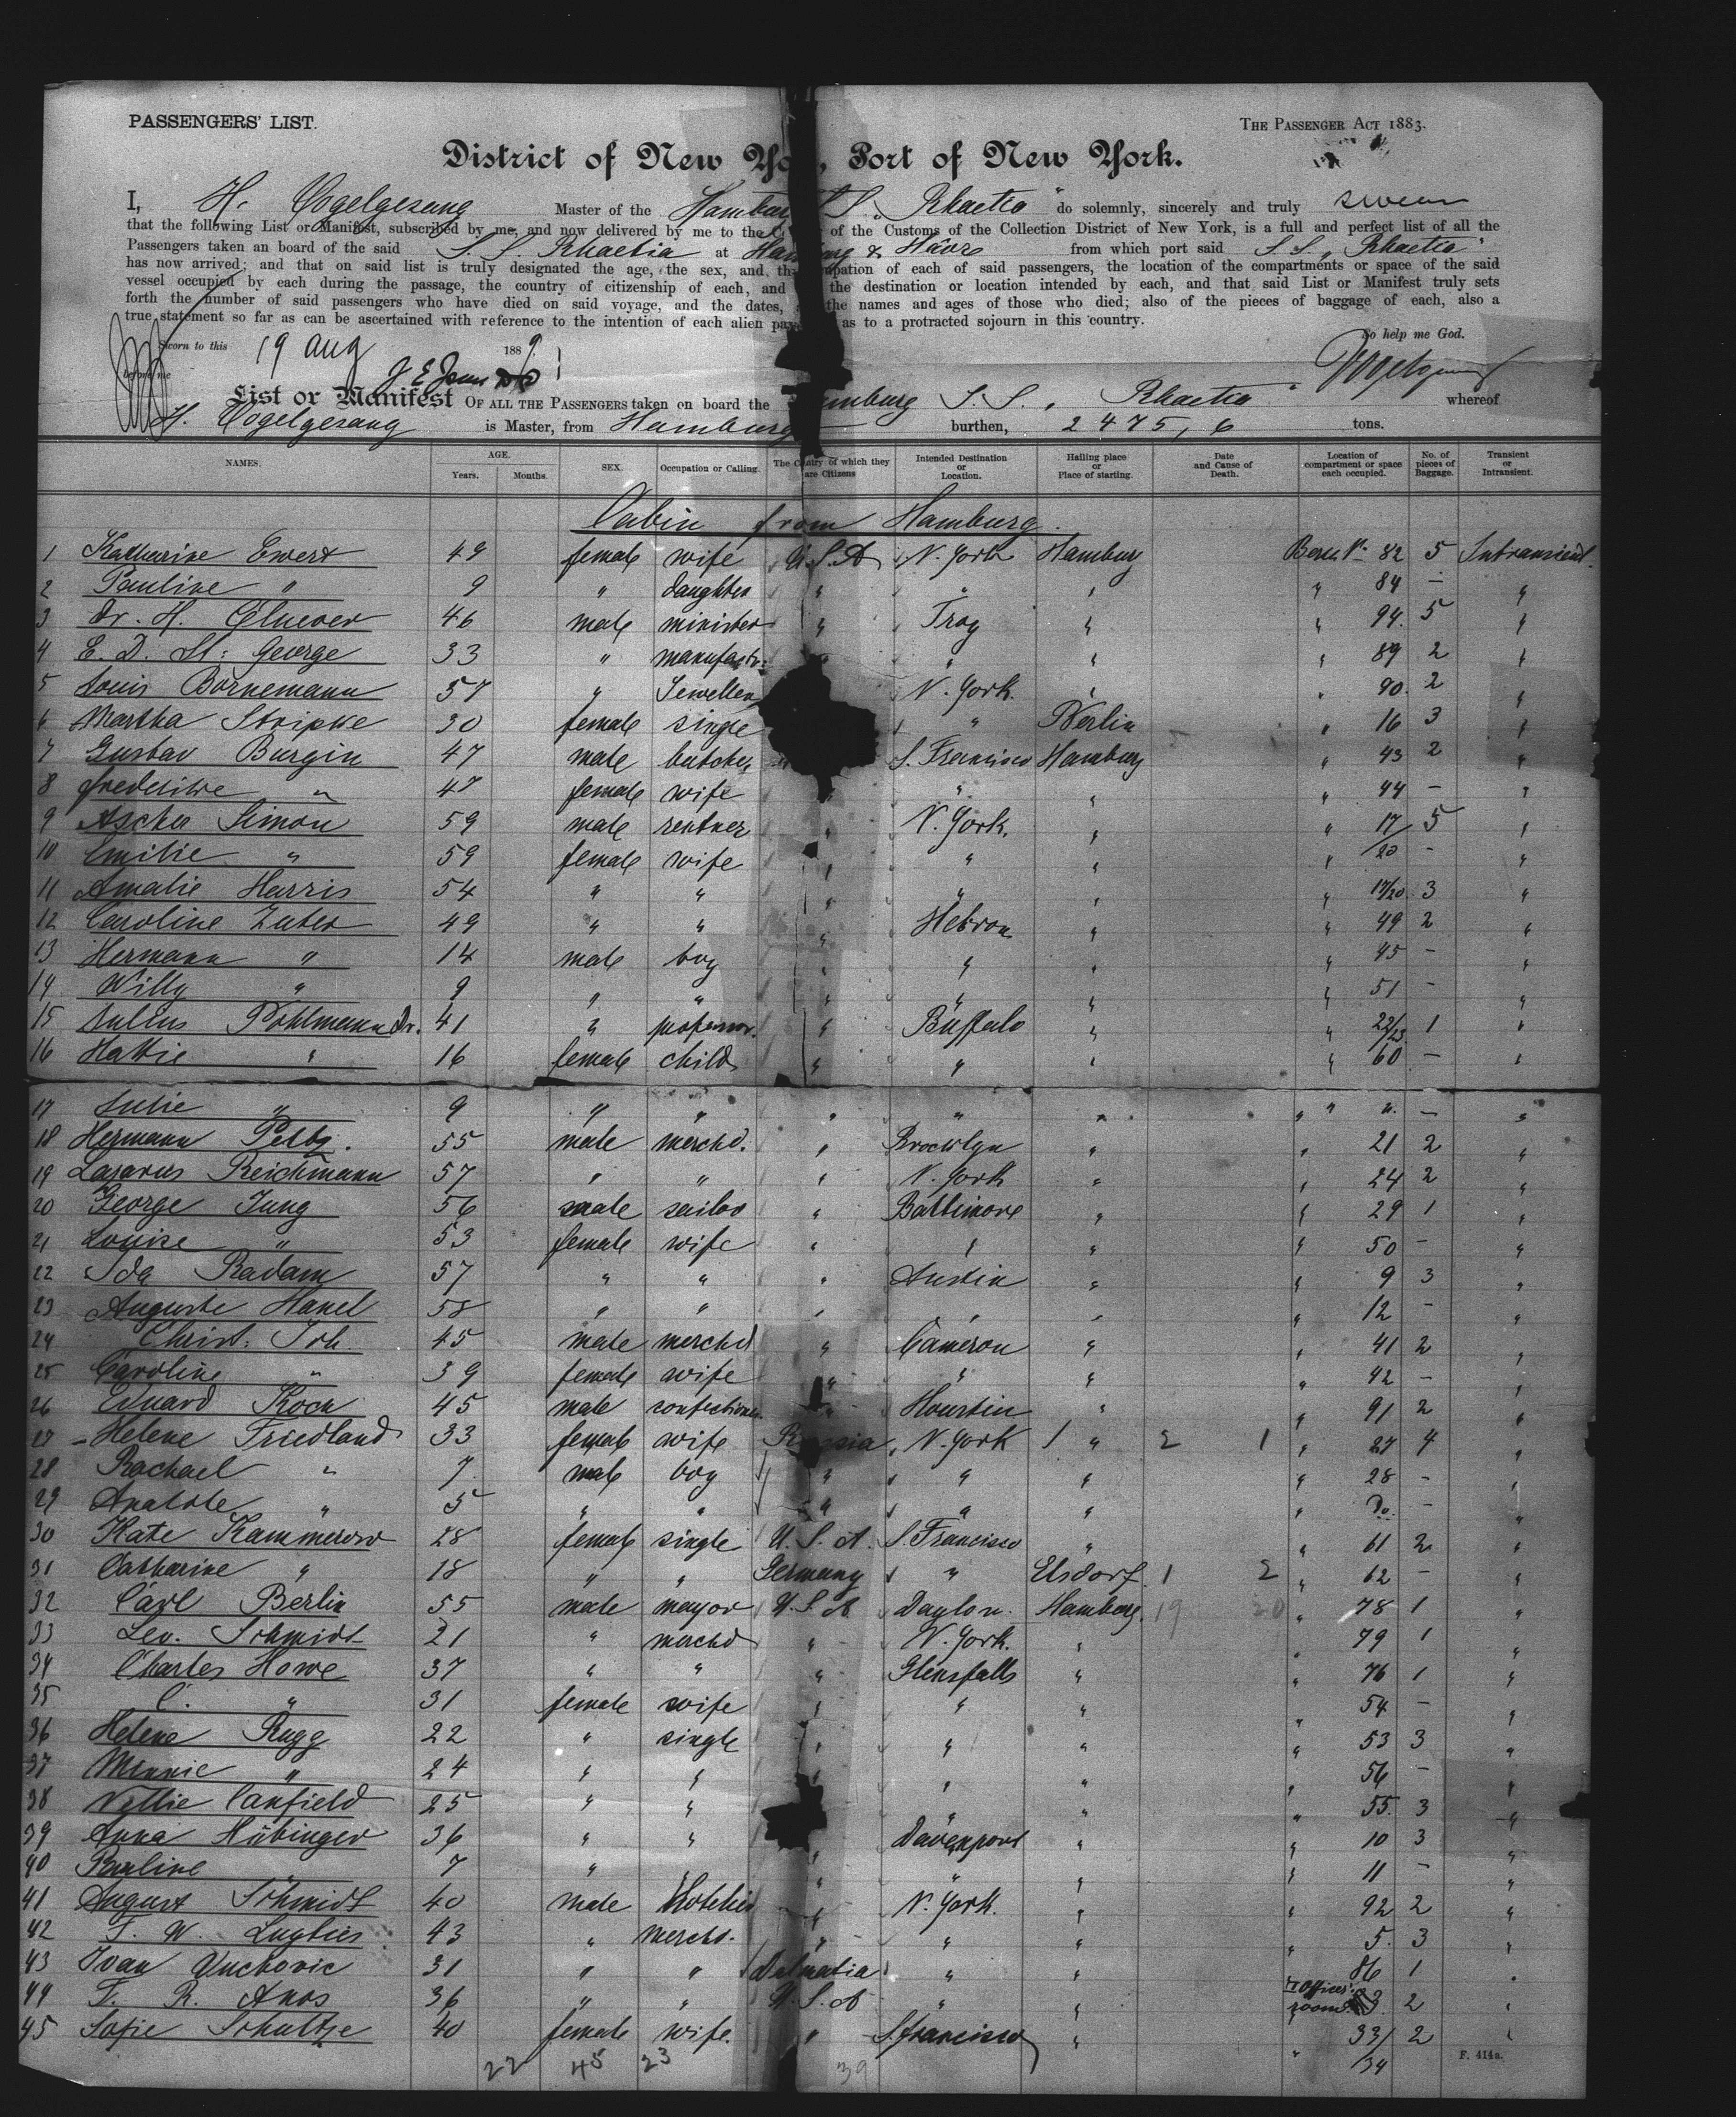 PASSENGERS' LIST.
THE PASSENGER ACT 1883.
District of New Yo, Port of New York.
I, H. Vogelgesang Master of the Hambur S. S. „Rhaetia" do solemnly, sincerely and truly swear
that the following List or Manifest, subscribed by me, and now delivered by me to the C of the Customs of the Collection District of New York, is a full and perfect list of all the
Passengers taken on board of the said S. S. Rhaetia at Hamburg & Havre from which port said S. S. „Rhaetia"
has now arrived; and that on said list is truly designated the age, the sex, and th upation of each of said passengers, the location of the compartments or space of the said
vessel occupied by each during the passage, the country of citizenship of each, and the destination or location intended by each, and that said List or Manifest truly sets
forth the number of said passengers who have died on said voyage, and the dates, the names and ages of those who died; also of the pieces of baggage of each, also a
true statement so far as can be ascertained with reference to the intention of each alien pas as to a protracted sojourn in this country.
Sworn to this 19 Aug 1889
So help me God.
before me
Vogelgesang
List or Manifest OF ALL THE PASSENGERS taken on board the Hamburg S. S. „Rhaetia" whereof
H. Vogelgesang is Master, from Hamburg burthen, 2475,6 tons.
NAMES. AGE. Years. Months. SEX. Occupation or Calling. The Country of which they are Citizens Intended Destination or Location. Hailing place or Place of starting. Date and Cause of Death. Location of compartment or space each occupied. No. of pieces of Baggage. Transient or Intransient.
Cabin from Hamburg.
1 Katharine Ewert 49 female wife U.S.A N. York Hamburg 82 5 Intransient.
2 Pauline " 9 " daughter " " " " 84 - "
3 Dr. H. 46 male minister " Troy " " 94. 5 "
4 E. D. St. George 33 " manufactr: " " " 89 2 "
5 Louis Bornemann 57 " Jeweller N. York. " " 90. 2 "
6 Martha 30 female single " Berlin " 16 3 "
7 Gustav Burgin 47 male butcher S. Francisco Hamburg " 43 2 "
8 Frederike " 47 female wife " " " 44 - "
9 Ascher Simon 59 male rentner " N. York. " " 17/20 5 "
10 Emilie " 59 female wife " " " " - "
11 Amalie Harris 54 " " " " " " 17/20 3 "
12 Caroline Zuber 49 " " " Hebron " " 49 2 "
13 Hermann " 14 male boy " " " " 45 - "
14 Willy " 9 " " " " " " 51 - "
15 Julius Pohlmann Dr. 41 " professor. " Buffalo " " 22/23 1 "
16 Hattie " 16 female child " " " " 60 - "
17 Julie " 9 " " " " " " " " - "
18 Hermann 55 male merchd. " Brooklyn " " 21 2 "
19 Lazarus Reichmann 57 " " " N. York " " 24 2 "
20 George Jung 56 male sailor " Baltimore " " 29 1 "
21 Louise " 53 female wife " " " " 50 - "
22 Ida Radam 57 " " " Austin " " 9 3 "
23 Auguste Hanel 58 " " " " " " 12 - "
24 Christ: Joh. 45 male merchd " Cameron " " 41 2 "
25 Caroline " 39 female wife " " " " 42 - "
26 Eduard Koch 45 male confectioner. " Houstin " " 91 2 "
27 Helene Friedland 33 female wife Russia N. York " 2 1 " 27 4 "
28 Rachael " 7 male boy " " " " 28 - "
29 Anatole " 5 " " " " " " Do. - "
30 Kate Kammerow 28 female single U. S. A. S. Francisco " " 61 2 "
31 Catharine " 18 " " Germany " Elsdorf. 1 2 " 62 - "
32 Carl Berlin 55 male mayor U. S. A Dayton. Hamburg. 19 20 " 78 1 "
33 Leo. Schmidt 21 " merchd " N. York. " " 79 1 "
34 Charles Howe 37 " " " Glensfalls " " 76 1 "
35 C. " 31 female wife " " " " 54 - "
36 Helene Rugg 22 " single " " " " 53 3 "
37 Minnie " 24 " " " " " " 56 - "
38 Nellie Canfield 25 " " " " " 55. 3 "
39 Anna Hübinger 36 " " Davenport " " 10 3 "
40 Pauline " 7 " " " " " 11 - "
41 August Schmidt 40 male " N. York. " " 92 2 "
42 F. W. 43 " merchd. " " " " 5. 3 "
43 Ivan 31 " " Dalmatia " " 86 1 "
44 F. R. Anos 36 " " U. S. A " " Officers' rooms 3. 2 "
45 Sofie Schultze 40 female wife. " S. Francisco " " 33/34 2 "
22 45 23 39
F. 414a.